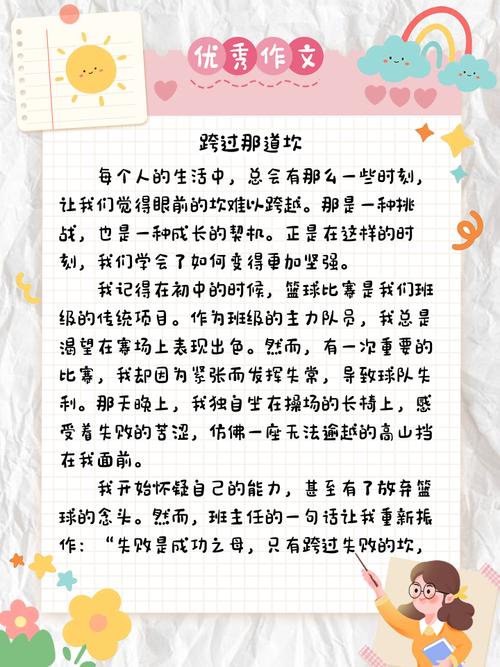 优秀作文
跨过那道坎
每个人的生活中，总会有那么一些时刻，
让我们觉得眼前的坎难以跨越。那是一种挑
战，也是一种成长的契机。正是在这样的时
刻，我们学会了如何变得更加坚强。
我记得在初中的时候，篮球比赛是我们班
级的传统项目。作为班级的主力队员，我总是
渴望在赛场上表现出色。然而，有一次重要的
比赛，我却因为紧张而发挥失常，导致球队失
利。那天晚上，我独自坐在操场的长椅上，感
受着失败的苦涩，仿佛一座无法逾越的高山挡
在我面前。
我开始怀疑自己的能力，甚至有了放弃篮
球的念头。然而，班主任的一句话让我重新振
作：“失败是成功之母，只有跨过失败的坎，